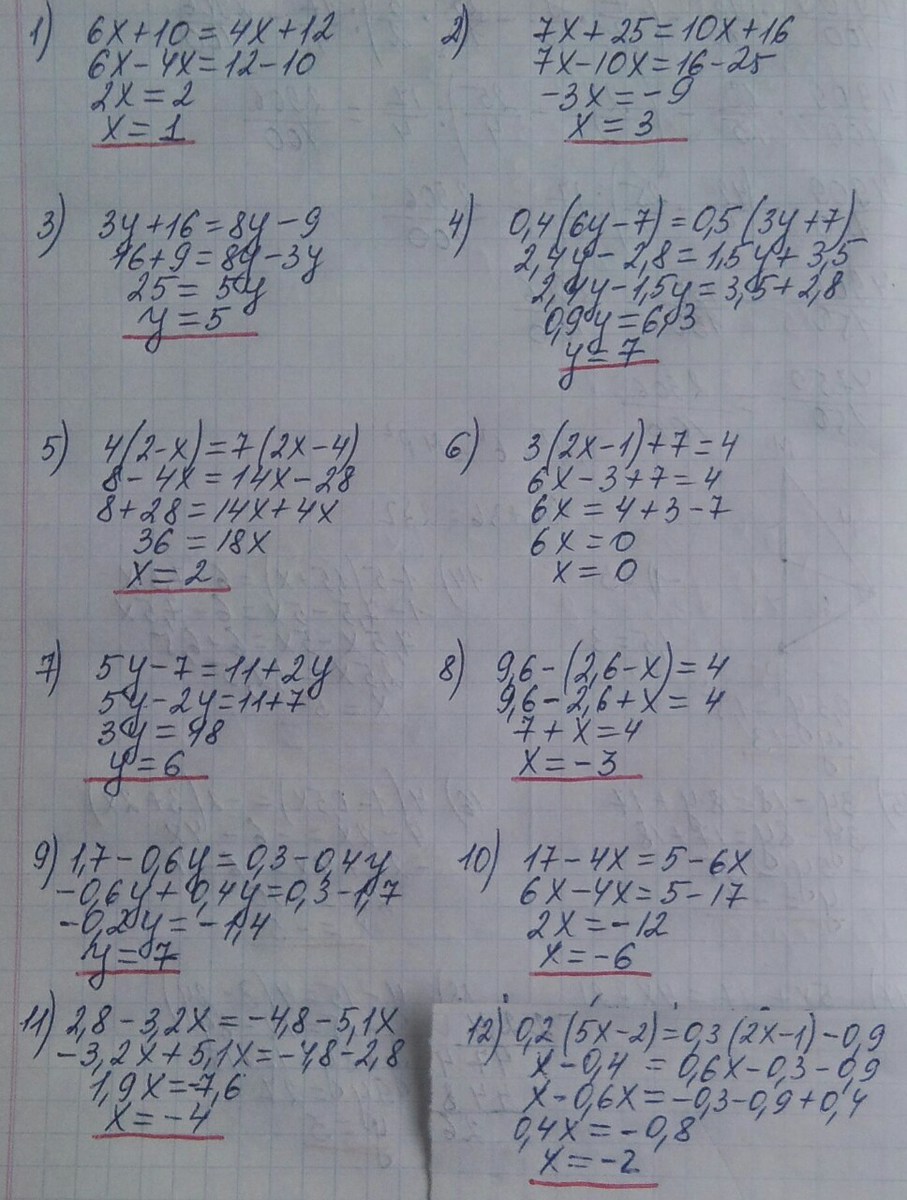 1) 6x+10=4x+12
6x-4x=12-10
2x=2
x=1
2) 7x+25=10x+16
7x-10x=16-25
-3x=-9
x=3
3) 3y+16=8y-9
16+9=8y-3y
25=5y
y=5
4) 0,4(6y-7)=0,5(3y+7)
2,4y-2,8=1,5y+3,5
2,4y-1,5y=3,5+2,8
0,9y=6,3
y=7
5) 4(2-x)=7(2x-4)
8-4x=14x-28
8+28=14x+4x
36=18x
x=2
6) 3(2x-1)+7=4
6x-3+7=4
6x=4+3-7
6x=0
x=0
7) 5y-7=11+2y
5y-2y=11+7
3y=18
y=6
8) 9,6-(2,6-x)=4
9,6-2,6+x=4
7+x=4
x=-3
9) 1,7-0,6y=0,3-0,4y
-0,6y+0,4y=0,3-1,7
-0,2y=-1,4
y=7
10) 17-4x=5-6x
6x-4x=5-17
2x=-12
x=-6
11) 2,8-3,2x=-4,8-5,1x
-3,2x+5,1x=-4,8-2,8
1,9x=-7,6
x=-4
12) 0,2(5x-2)=0,3(2x-1)-0,9
x-0,4=0,6x-0,3-0,9
x-0,6x=-0,3-0,9+0,4
0,4x=-0,8
x=-2